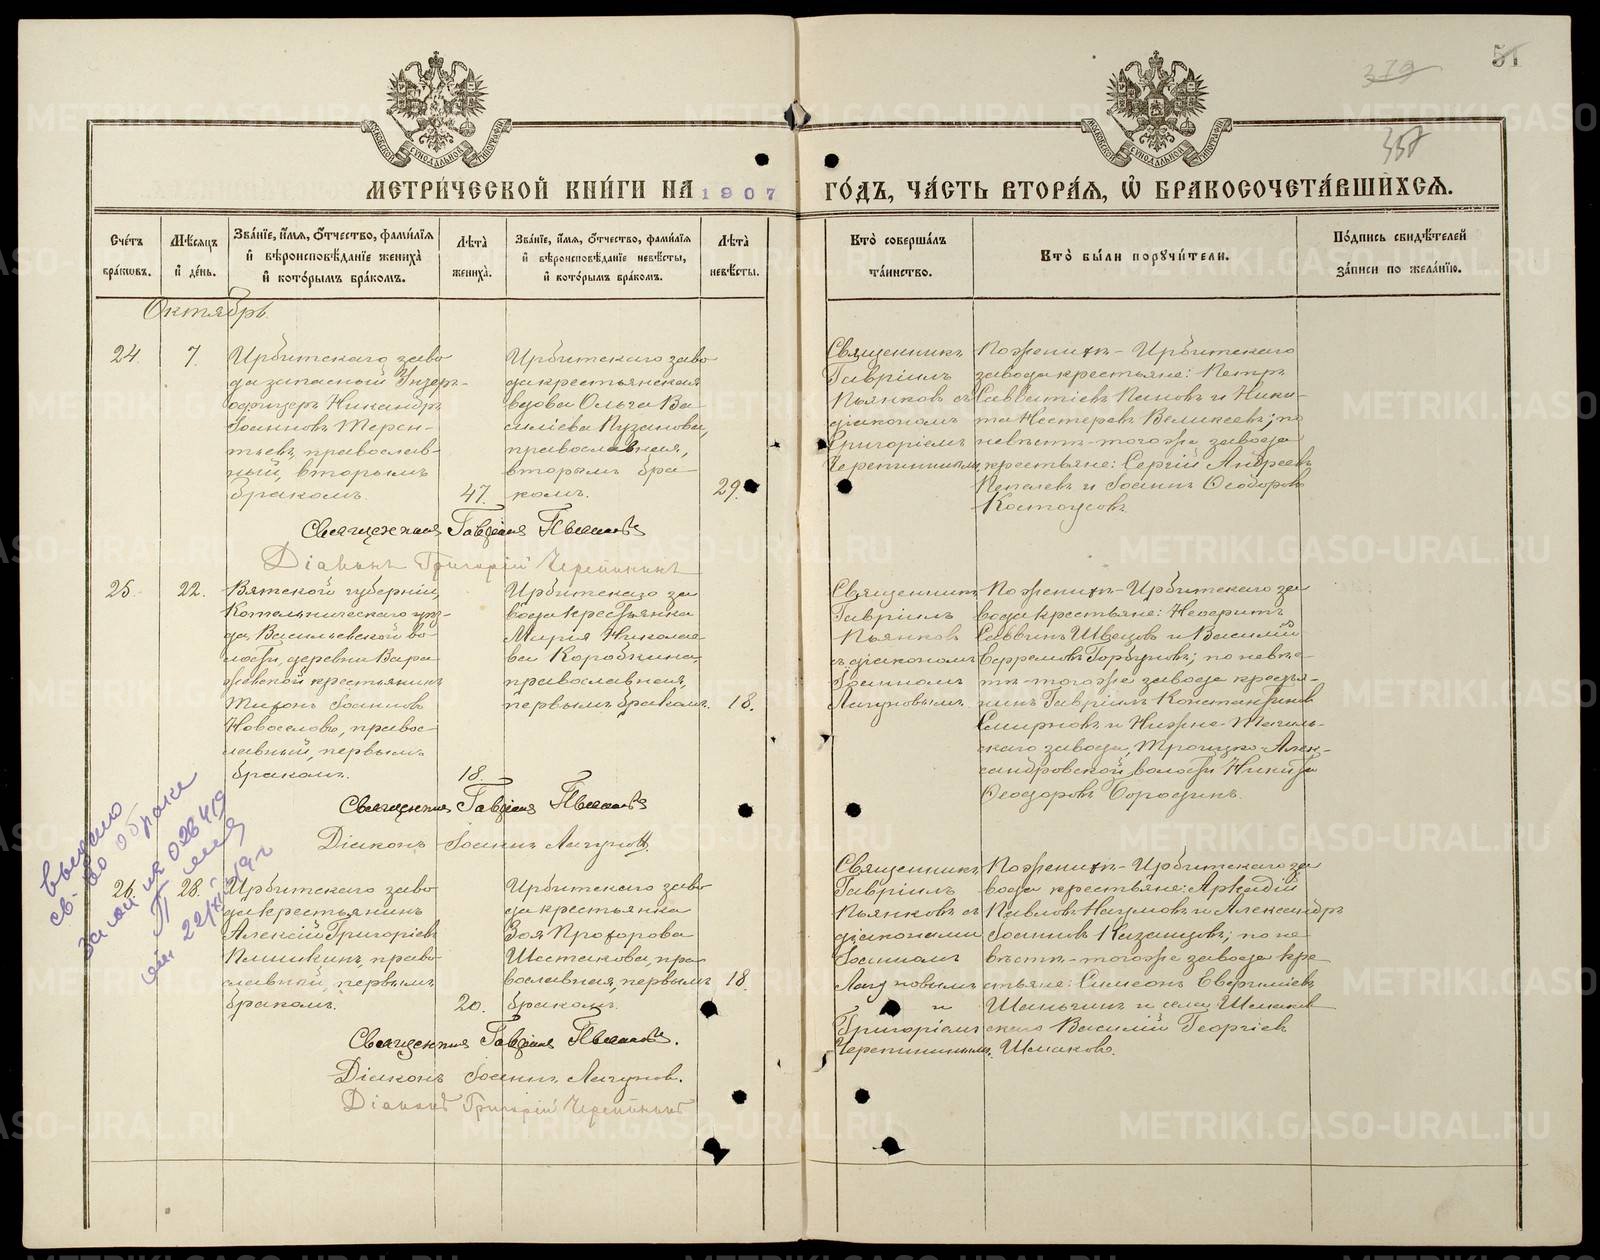 51
379
358
МОСКОВСКОЙ СѴНОДАЛЬНОЙ ТИПОГРАФІИ
МОСКОВСКОЙ СѴНОДАЛЬНОЙ ТИПОГРАФІИ
МЕТРИ́ЧЕСКОЙ КНИ́ГИ НА 1907 ГО́ДЪ, ЧА́СТЬ ВТОРА́Я, Ѡ҆ БРАКОСОЧЕТА́ВШИХСЯ.
Сче́тъ
бра́кѡвъ.
Мѣ́сяцъ
и҆ де́нь.
Зва́нїе, и҆́мя, ѻ҆́тчество, фами́лїя
и҆ вѣроисповѣ́данїе жениха̀
и҆ кото́рымъ бра́комъ.
Лѣ́та
жениха̀.
Зва́нїе, и҆́мя, ѻ҆́тчество, фами́лїя
и҆ вѣроисповѣ́данїе невѣ́сты,
и҆ кото́рымъ бра́комъ.
Лѣ́та
невѣ́сты.
Кто̀ соверша́лъ
та́инство.
Кто̀ бы́ли порꙋчи́тели.
По́дпись свидѣ́телей
за́писи по жела́нїю.
Октябрь.
24.
7.
Ирбитскаго заво
да запасный Унтеръ-
офицеръ Никандръ
Іоанновъ Терен-
тьевъ, православ-
ный, вторымъ
бракомъ.
47.
Ирбитскаго заво
да крестьянская
вдова Ольга Ва
силіева Пузанова,
православная,
вторымъ бра
комъ.
29.
Священникъ
Гавріилъ
Пьянковъ съ
діакономъ
Григоріемъ
Черепнинымъ
По женихѣ - Ирбитскаго
завода крестьяне: Петръ
Савватіевъ Пановъ и Ники-
та Нестеровъ Великсевъ; по
невѣстѣ - тогоже завода
крестьяне: Сергій Андреевъ
Пепелевъ и Іоаннъ Ѳеодоровъ
Костоусовъ.
Священникъ Гавріилъ Пьянковъ
Діаконъ Григорій Черепнинъ
25.
22.
Вятской губерніи,
Котельническаго уѣз-
да, Васильевской во-
лости, деревни Вара
жевской крестьянинъ
Тихонъ Іоанновъ
Новоселовъ, правос-
лавный, первымъ
бракомъ.
18.
Ирбитскаго за
вода крестьянка
Марія Николае
ва Коробкина,
православная,
первымъ бракомъ.
18.
Священникъ
Гавріилъ
Пьянковъ
съ діакономъ
Іоанномъ
Лагуновымъ
По женихѣ - Ирбитскаго за
вода крестьяне: Неофитъ
Саввинъ Швецовъ и Василій
Ефремовъ Горбуновъ; по невѣс-
тѣ - тогоже завода кресть-
янинъ Гавріилъ Константиновъ
Смирновъ и Нижне-Тагиль-
скаго завода, Троицко-Алек-
сандровской волости Никита
Ѳеодоровъ Бородинъ.
Священникъ Гавріилъ Пьянковъ
Діаконъ Іоаннъ Лагуновъ.
выдано
св-во о браке
за
на 026419
от 22/XI
26.
28.
Ирбитскаго заво
да крестьянинъ
Алексій Григоріевъ
Пшикинъ, право
славный, первымъ
бракомъ.
20.
Ирбитскаго заво
да крестьянка
Зоя Прохорова
Шестакова, пра
вославная, первымъ
бракомъ.
18.
Священникъ
Гавріилъ
Пьянковъ съ
діаконами
Іоанномъ
Лагуновымъ
и
Григоріемъ
Черепнинымъ.
По женихѣ - Ирбитскаго за
вода крестьяне: Аркадій
Павловъ Наумовъ и Александръ
Іоанновъ Казанцовъ; по не
вѣстѣ - тогоже завода кре
стьяне: Симеонъ Евфиміевъ
Шаньгинъ и села Шмаков
скаго Василій Георгіевъ
Шмаковъ.
Священникъ Гавріилъ Пьянковъ.
Діаконъ Іоаннъ Лагуновъ.
Діаконъ Григорій Черепнинъ
METRIKI.GASO-URAL.RU